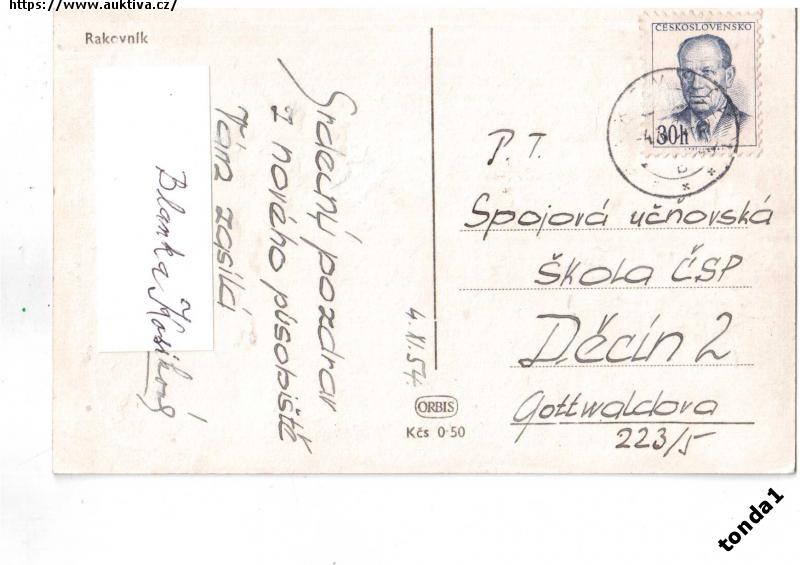 https://www.auktiva.cz/
Rakovník
ČESKOSLOVENSKO
30h
Srdečný pozdrav
z nového působiště
Vám zasílá
Blanka
4. XI. 54.
ORBIS
Kčs 0·50
P. T.
Spojová učňovská
škola ČSP
Děčín 2
Gottwaldova
223/5
tonda1